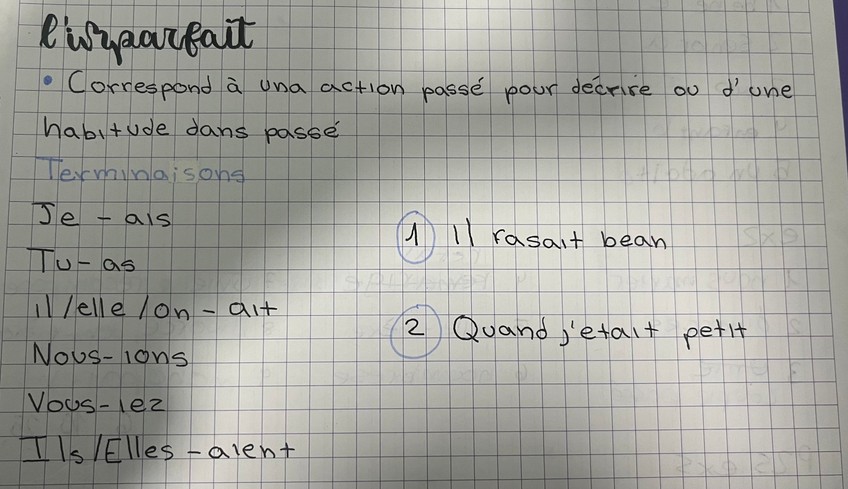 l'imparfait
• Correspond à una action passé pour décrire ou d'une
habitude dans passé
Terminaisons
Je - ais
Tu - as
il/elle/on - ait
Nous - ions
Vous - iez
Ils/Elles - aient
1 Il rasait bean
2 Quand j'etait petit